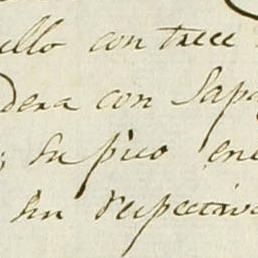 ello con trece
dera con Sapa
su pico en
sin respectiva